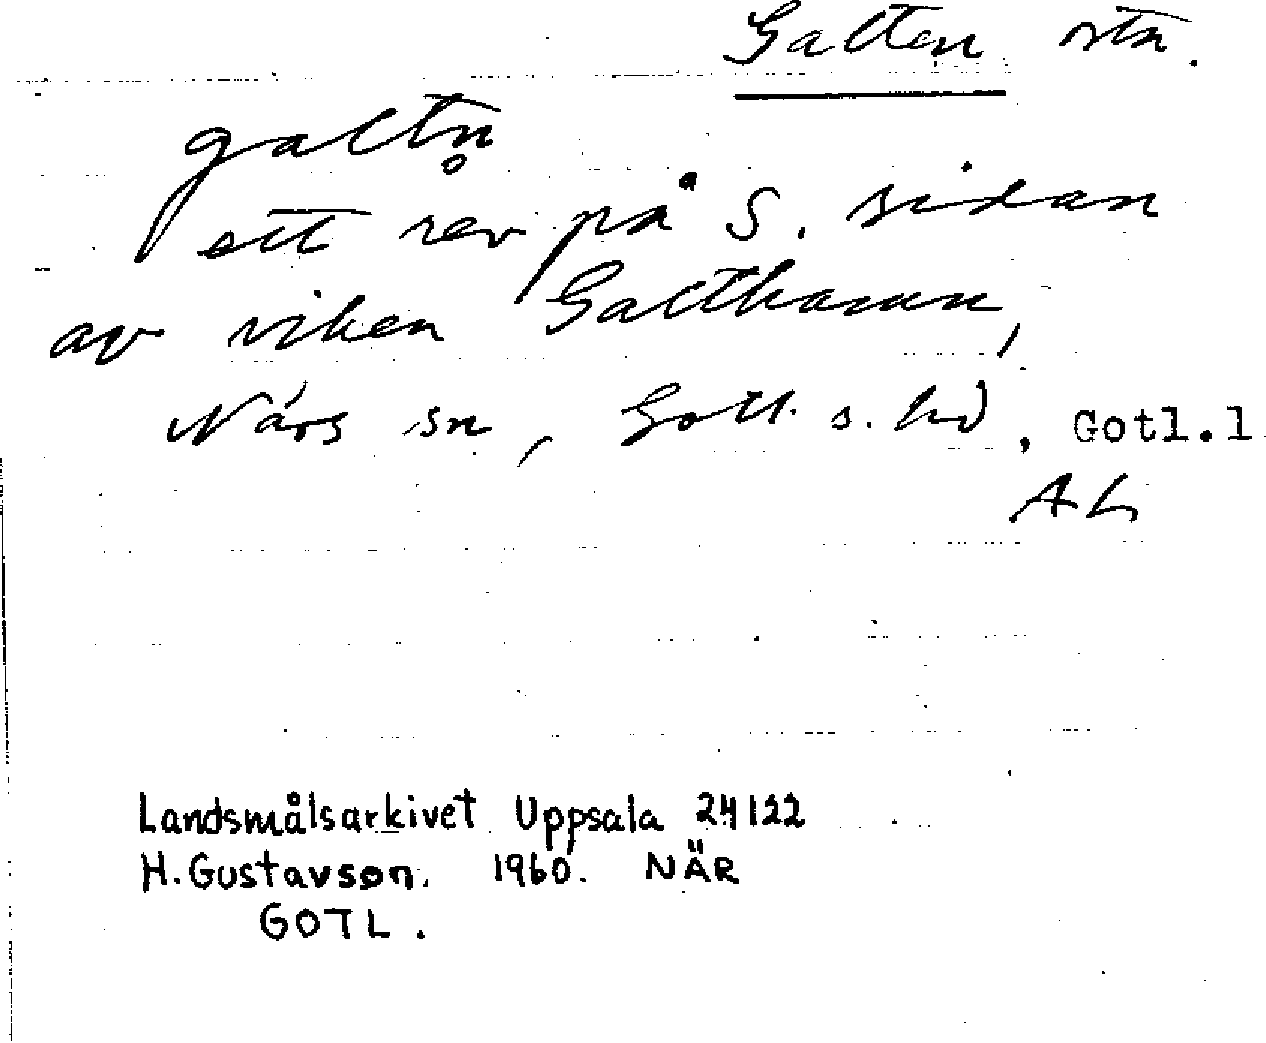 Galten ortn.
galtn̥
ett rev på S. sidan
av viken Galthamn,
Närs sn, Gotl. s. hd, Gotl.l
AL
Landsmålsarkivet Uppsala 24122
H. Gustavson. 1960. NÄR
GOTL.